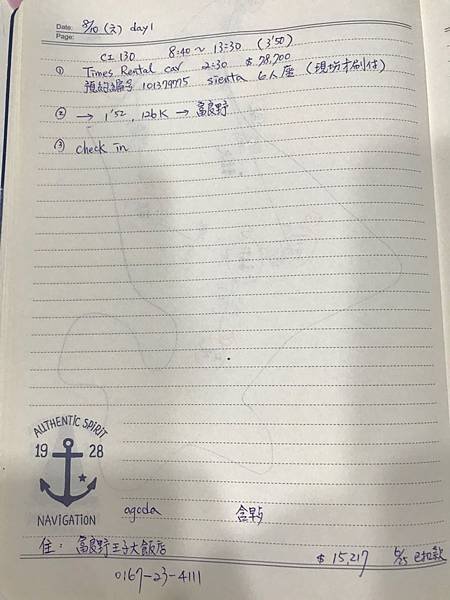 Date: 8/10 (六) day 1
Page:
CI 130 8:40 ~ 13:30 (3'50)
① Times Rental car 2:30 $ 28,200
預約編号 101379775 sienta 6人座 (現場才刷付)
② → 1'52, 126K → 富良野
③ check in
AUTHENTIC SPIRIT
19 28
NAVIGATION
agoda 含早
住: 富良野王子大飯店
$ 15,217 已扣款
0167-23-4111